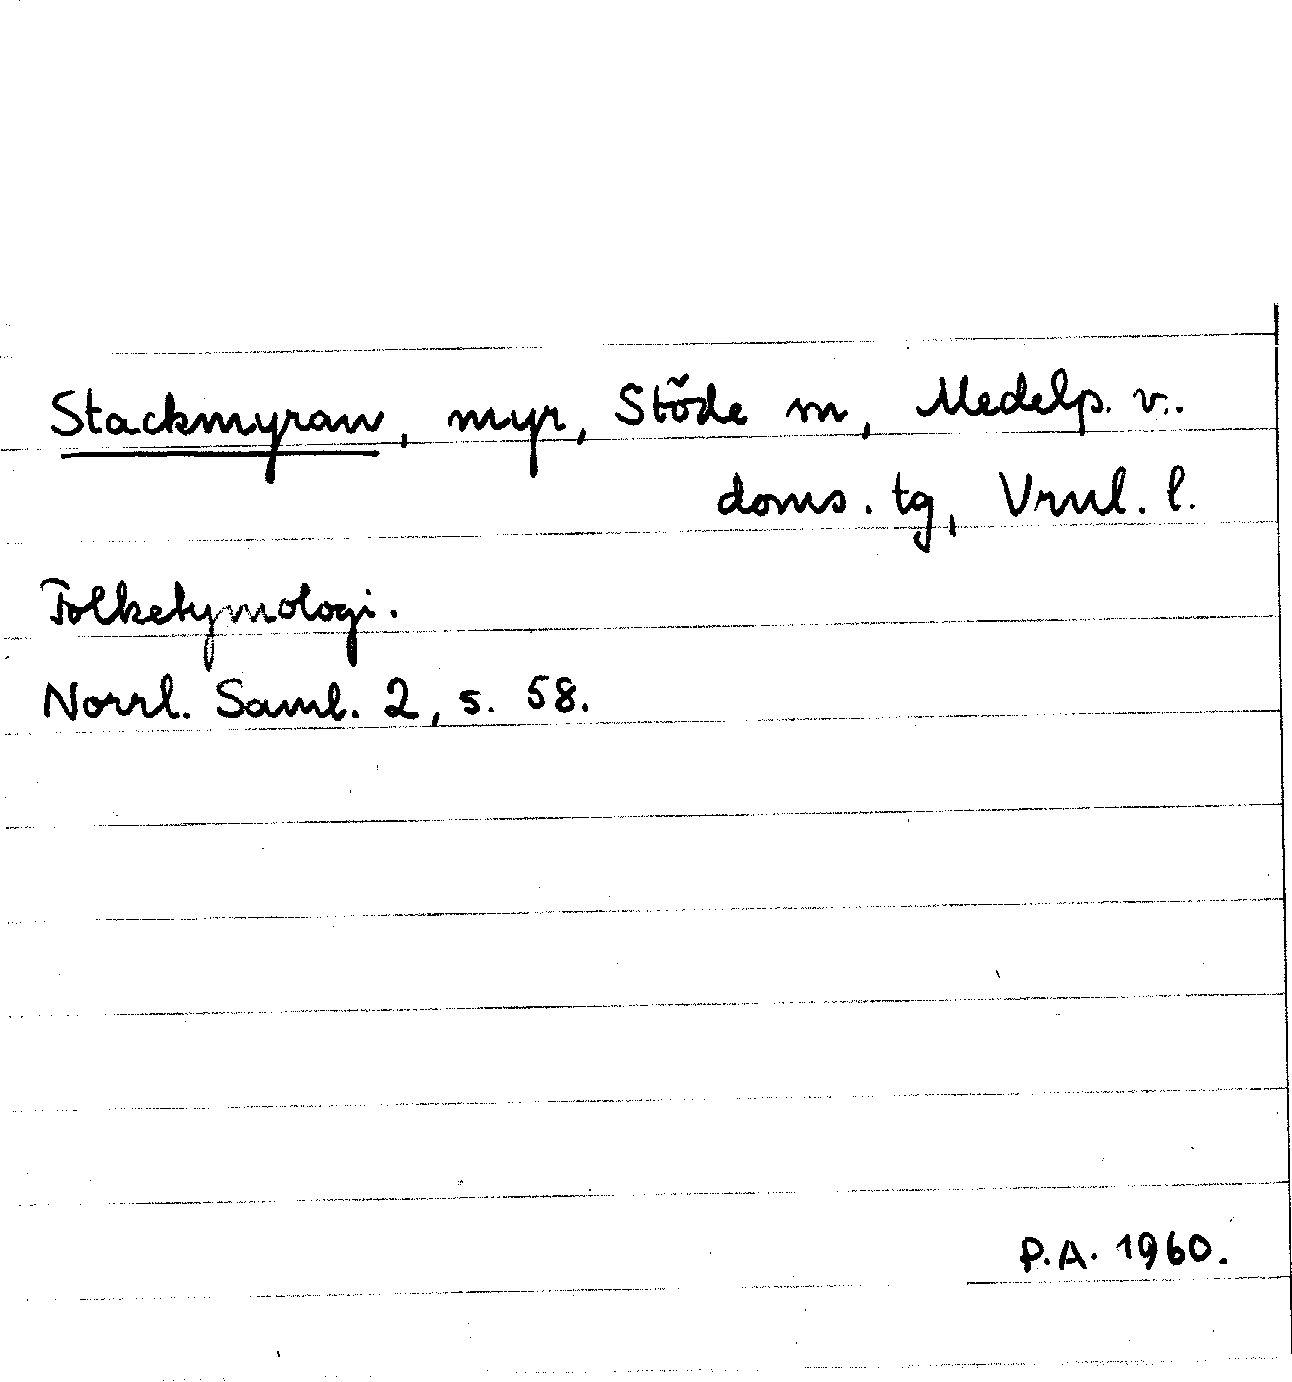 Stackmyran, myr, Stöde sn, Medelp. v.
doms. tg, Vrnl. l.
Folketymologi.
Norrl. Saml. 2, s. 58.
P.A. 1960.